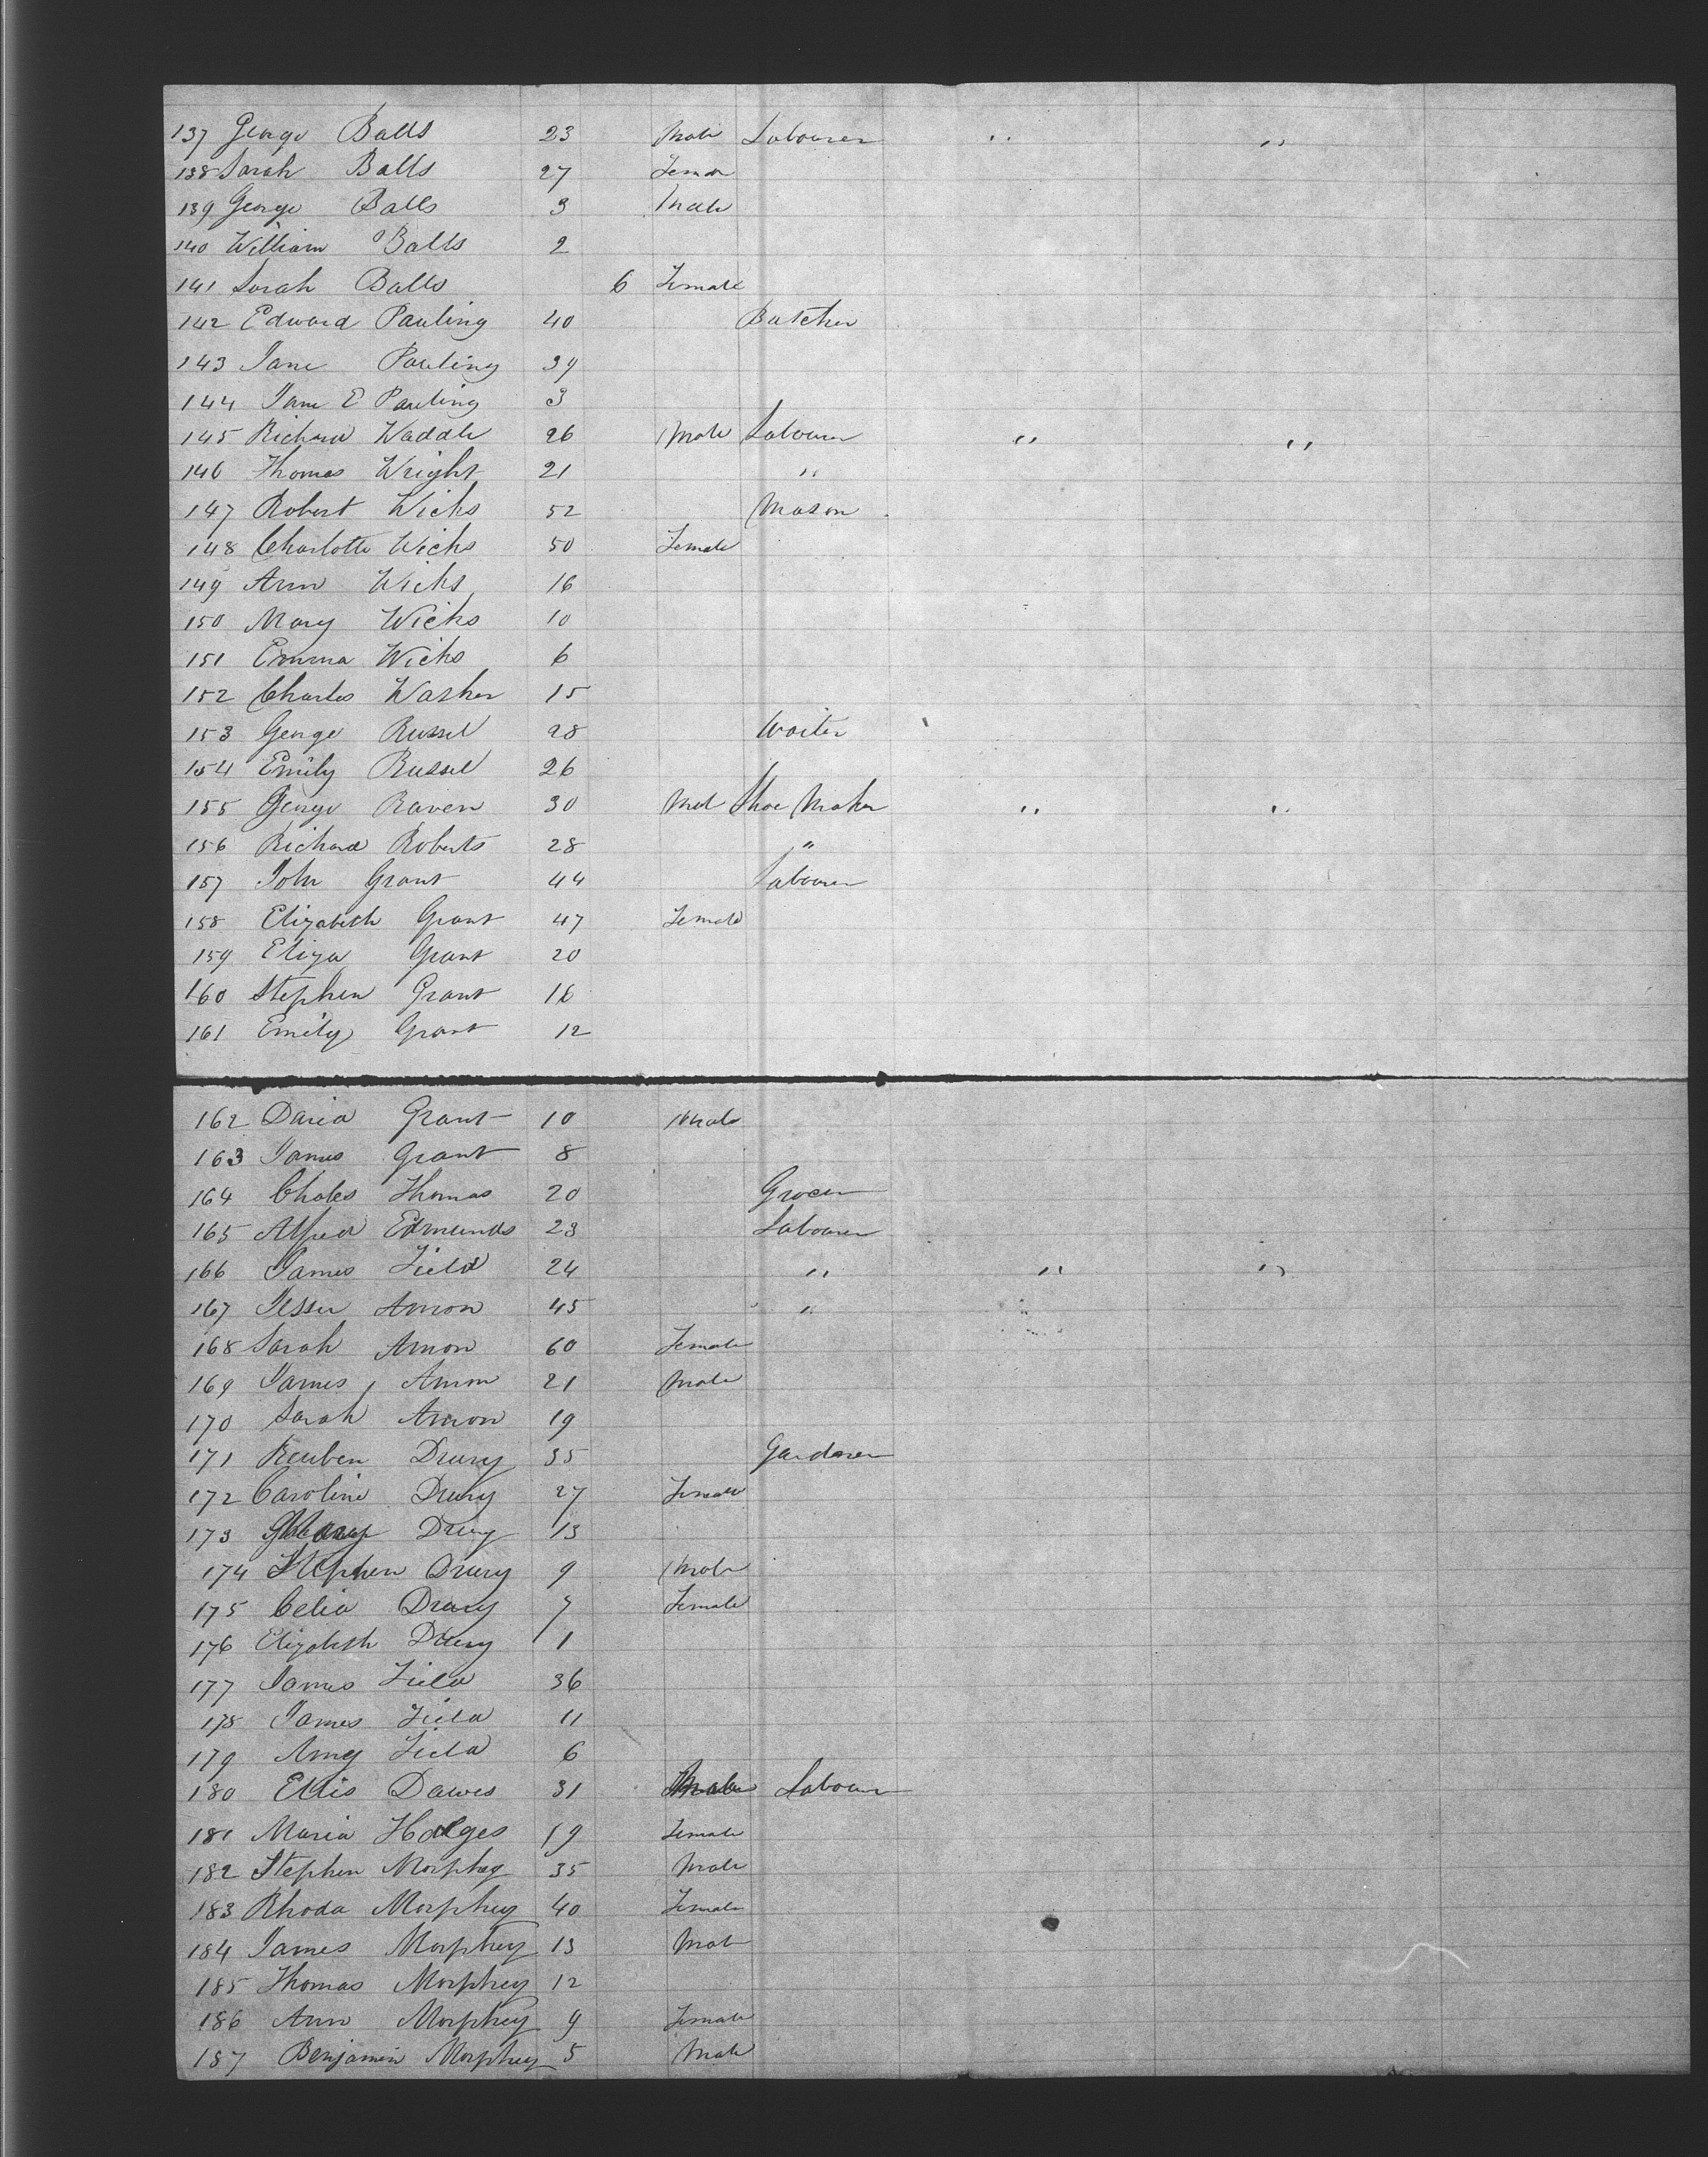 137 George Balls 23 Male Labourer " "
138 Sarah Balls 27 Female
139 George Balls 3 Male
140 William Balls 2
141 Sarah Balls 6 Female
142 Edward Pauling 40 Butcher
143 Jane Pauling 39
144 Jane E Pauling 3
145 Richard Waddle 26 Male Labourer " "
146 Thomas Wright 21 "
147 Robert Wicks 52 Mason
148 Charlotte Wicks 50 Female
149 Ann Wicks 16
150 Mary Wicks 10
151 Emma Wicks 6
152 Charles Washer 15
153 George Russel 28 Waiter
154 Emily Russel 26
155 George Raven 30 Mal Shoe Maker " "
156 Richard Roberts 28 "
157 John Grant 44 Labourer
158 Elizabeth Grant 47 Female
159 Eliza Grant 20
160 Stephen Grant 16
161 Emily Grant 12
162 David Grant 10 Male
163 James Grant 8
164 Charles Thomas 20 Grocer
165 Alfred Edmunds 23 Labourer
166 James Field 24 " " "
167 Jesse Amon 45 "
168 Sarah Amon 60 Female
169 James Amon 21 Male
170 Sarah Amon 19
171 Reuben Drury 35 Gardener
172 Caroline Drury 27 Female
173 Mary Drury 13
174 Stephen Drury 9 Male
175 Celia Drury 7 Female
176 Elizabeth Drury 1
177 James Field 36
178 James Field 11
179 Amy Field 6
180 Ellis Dawes 31 Labourer
181 Maria Hodges 19 Female
182 Stephen Morphey 35 Male
183 Rhoda Morphey 40 Female
184 James Morphey 13 Male
185 Thomas Morphey 12
186 Ann Morphey 9 Female
187 Benjamin Morphey 5 Male